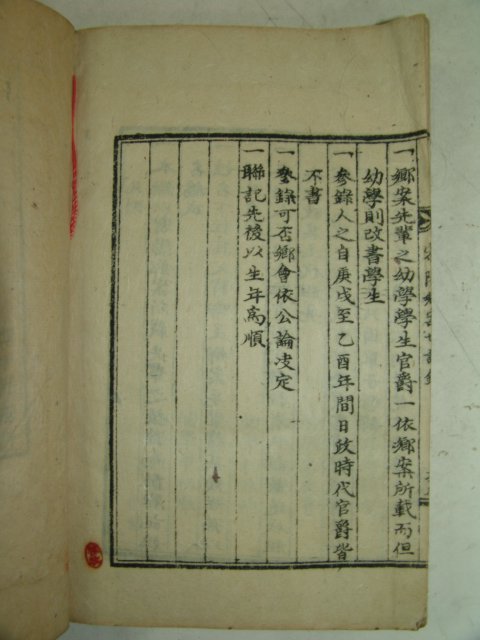 一 鄕案先輩之幼學學生官爵一依鄕案所載而但
幼學則改書學生
一 參錄人之自庚戌至乙酉年間日政時代官爵皆
不書
一 參錄可否鄕會依公論决定
一 聯記先後以生年爲順